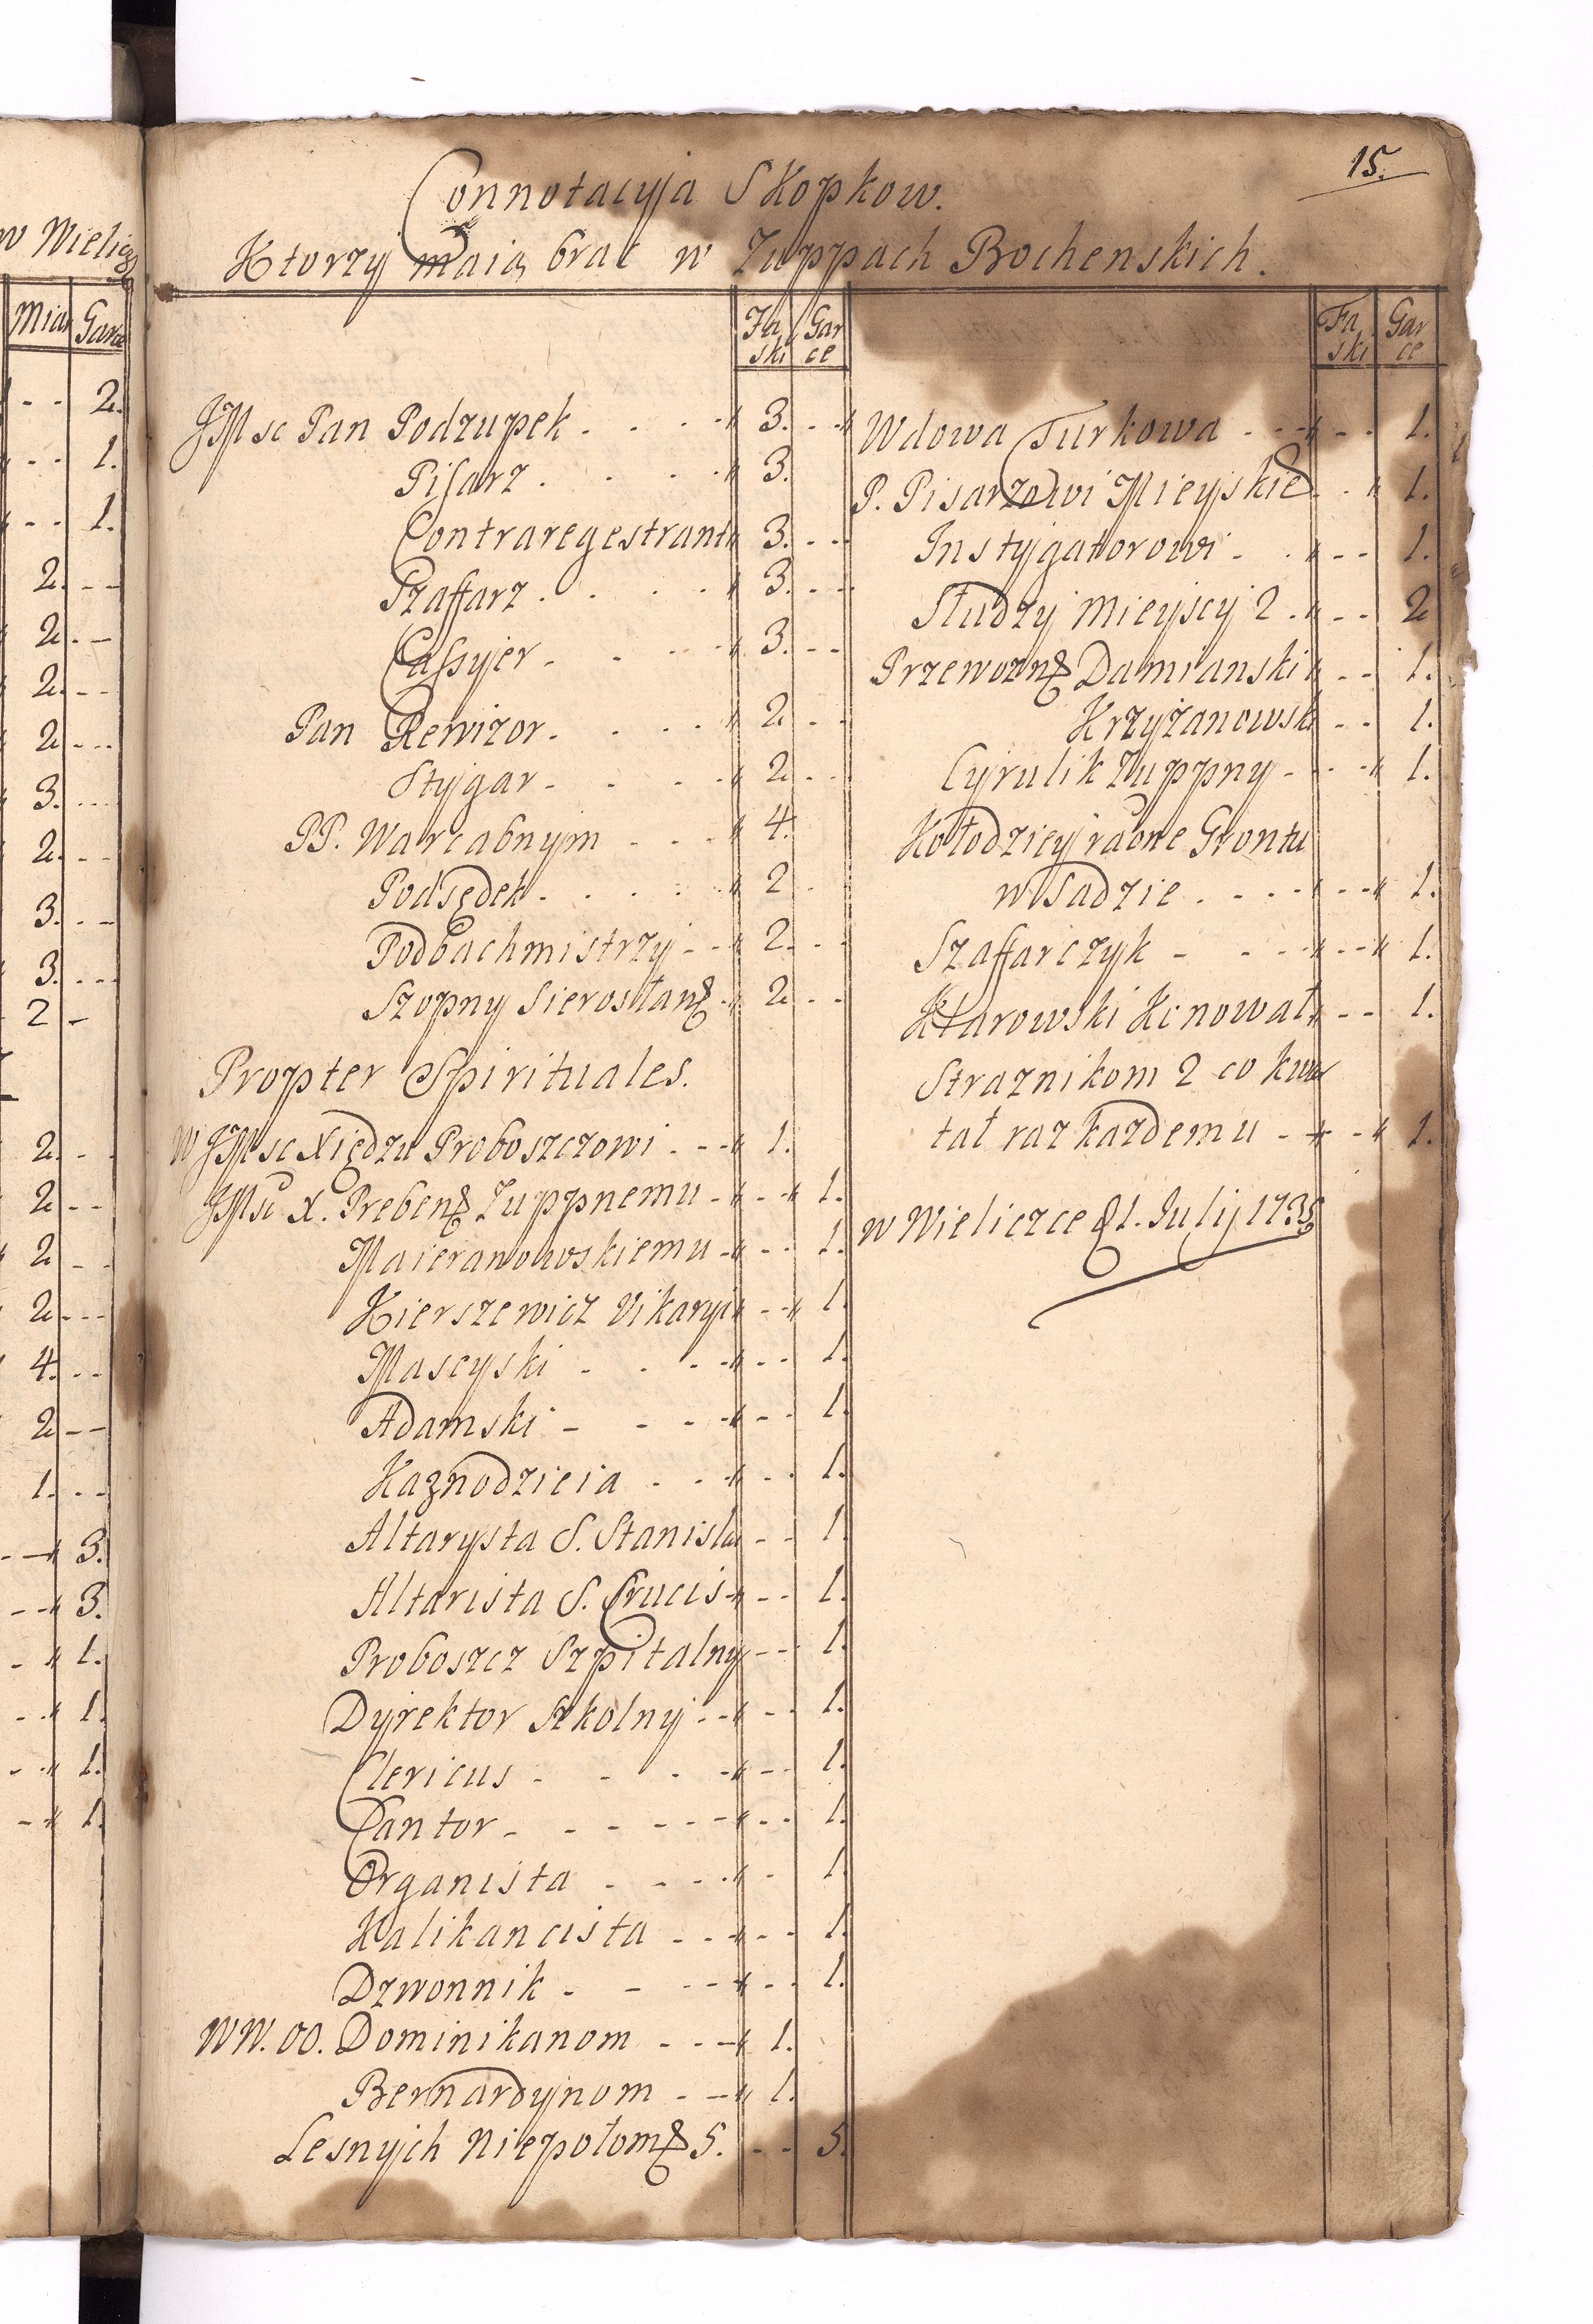 15.
Connotacyja Skopkow.
Ktorzy maią brac w Zuppach Bochenskich.
w Wielicz
Miar Garce
- - 2.
- - 1.
- - 1.
2. - -
2. - -
2. - -
2. - -
3. - -
2. - -
3. - -
3. - -
2 -
2. - -
2. - -
2 - -
2. - -
4. - -
2 - -
1. - -
- - 3.
- - 3.
- 1.
- - 1.
- - 1.
- 1.
Faski Garce
JMsc Pan Podzupek . . . . 3. - -
Pisarz . . . . 3.
Contraregestrant 3. - -
Szaffarz . . . . 3. - -
Cassyer - - - - 3. - -
Pan Rewizor - . . . 2. - -
Stygar - . . . 2 - -
PP. Warcabnym - - - 4.
Podsędek . . . . 2 -
Podbachmistrzy - - 2. - -
Szopny Sierosławs 2 - -
Propter Spirituales.
W JMsc Xiędzu Proboszczowi . - - 1.
JMsc X. Preben Zuppnemu - - - 1.
Maieranowskiemu - - - 1.
Kierszewicz Vikaryi - - 1.
Mascyski - - - - - 1.
Adamski - - - - - 1.
Kaznodzieia . - - - - 1.
Altarysta S. Stanisła - - 1.
Altarista S. Crucis - - - 1.
Proboszcz Szpitalny - - 1.
Dyrektor Szkolny - - - - 1.
Clericus - - - - - - 1.
Cantor - - - - - - - - 1.
Organista . - - - - 1.
Kalikancista - - - - - 1.
Dzwonnik . - - - - - 1.
WW. OO. Dominikanom - - - 1.
Bernardynom - - - 1.
Lesnych Niepołom 5. - - 5.
Faski Garce
Wdowa Turkowa - - - - - 1.
P. Pisarzowi Mieyskie - - 1.
Instygatorowi - . - - 1.
Słudzy Mieyscy 2 . - - 2
Przewozn Damianski - - 1.
Krzyżanowski - - 1.
Cyrulik Zuppny - - - 1.
Kołodziey racne Grontu
w Sadzie . - - - - - 1.
Szaffarczyk - - - - - 1.
Kłarowski Kinował - - 1.
Straznikom 2 co kwar
tał raz kazdemu - - - 1.
w Wieliczce d 1. Julij 1735